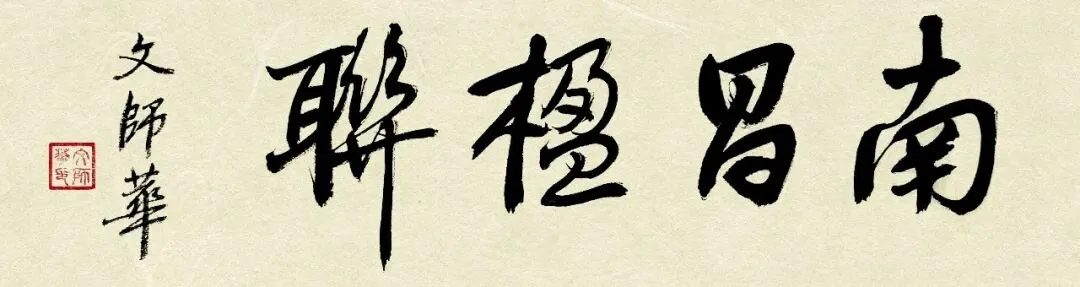 南昌楹聯
文師華
文師華印